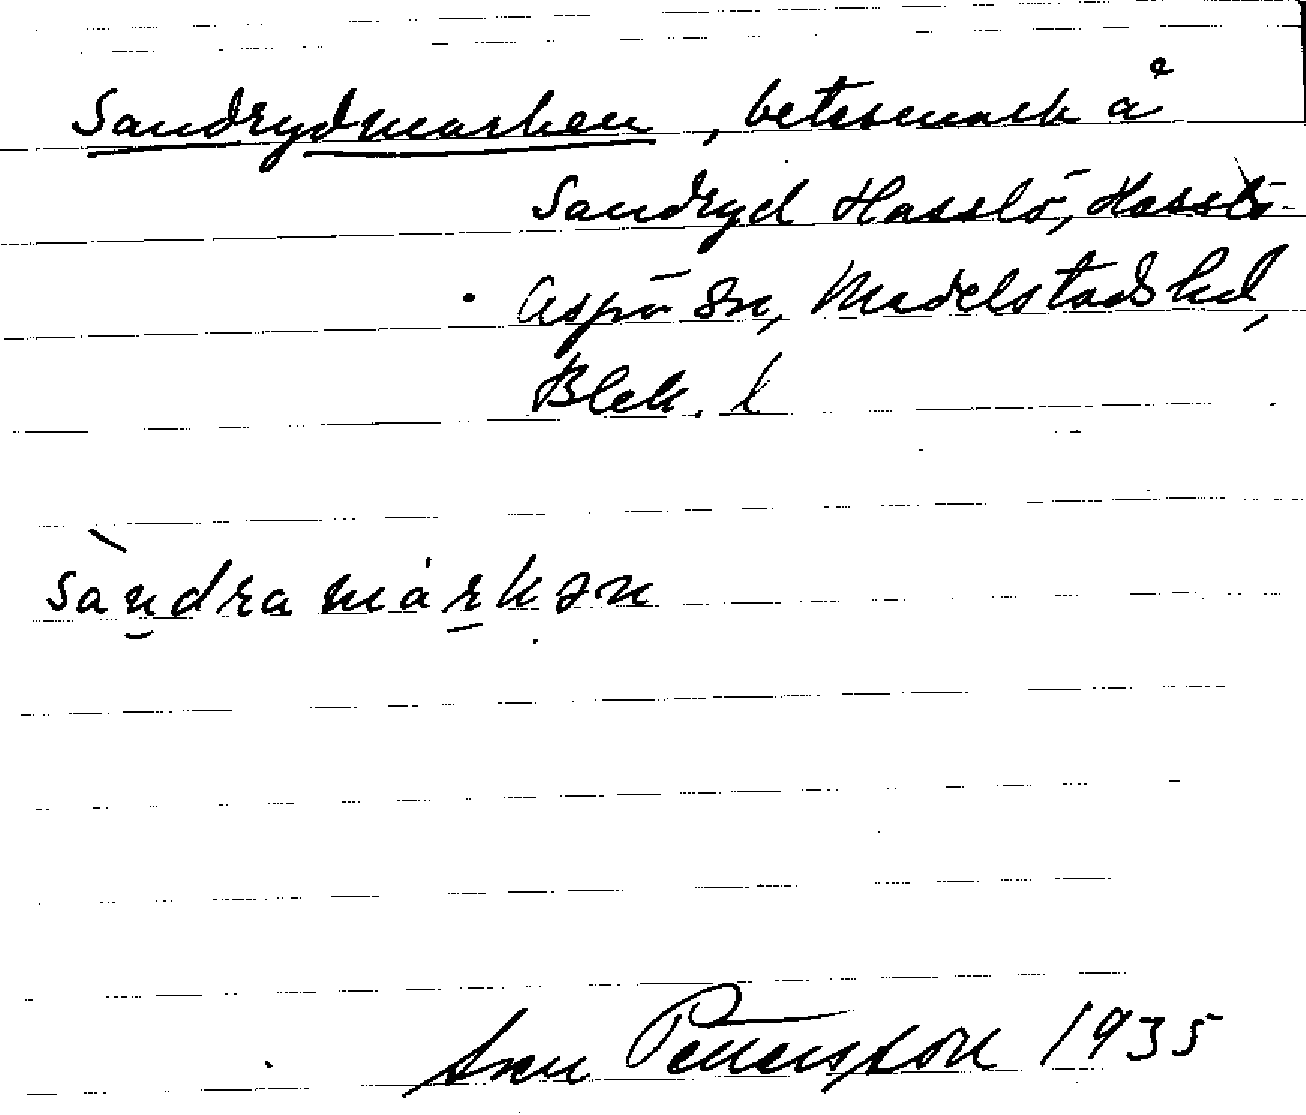 Sandrydmarken, betesmark å
Sandryd Hasslö, Hasslö-
Aspö sn, Medelstads hd,
Blek. l
sàndramárkən
Sven Pettersson 1935